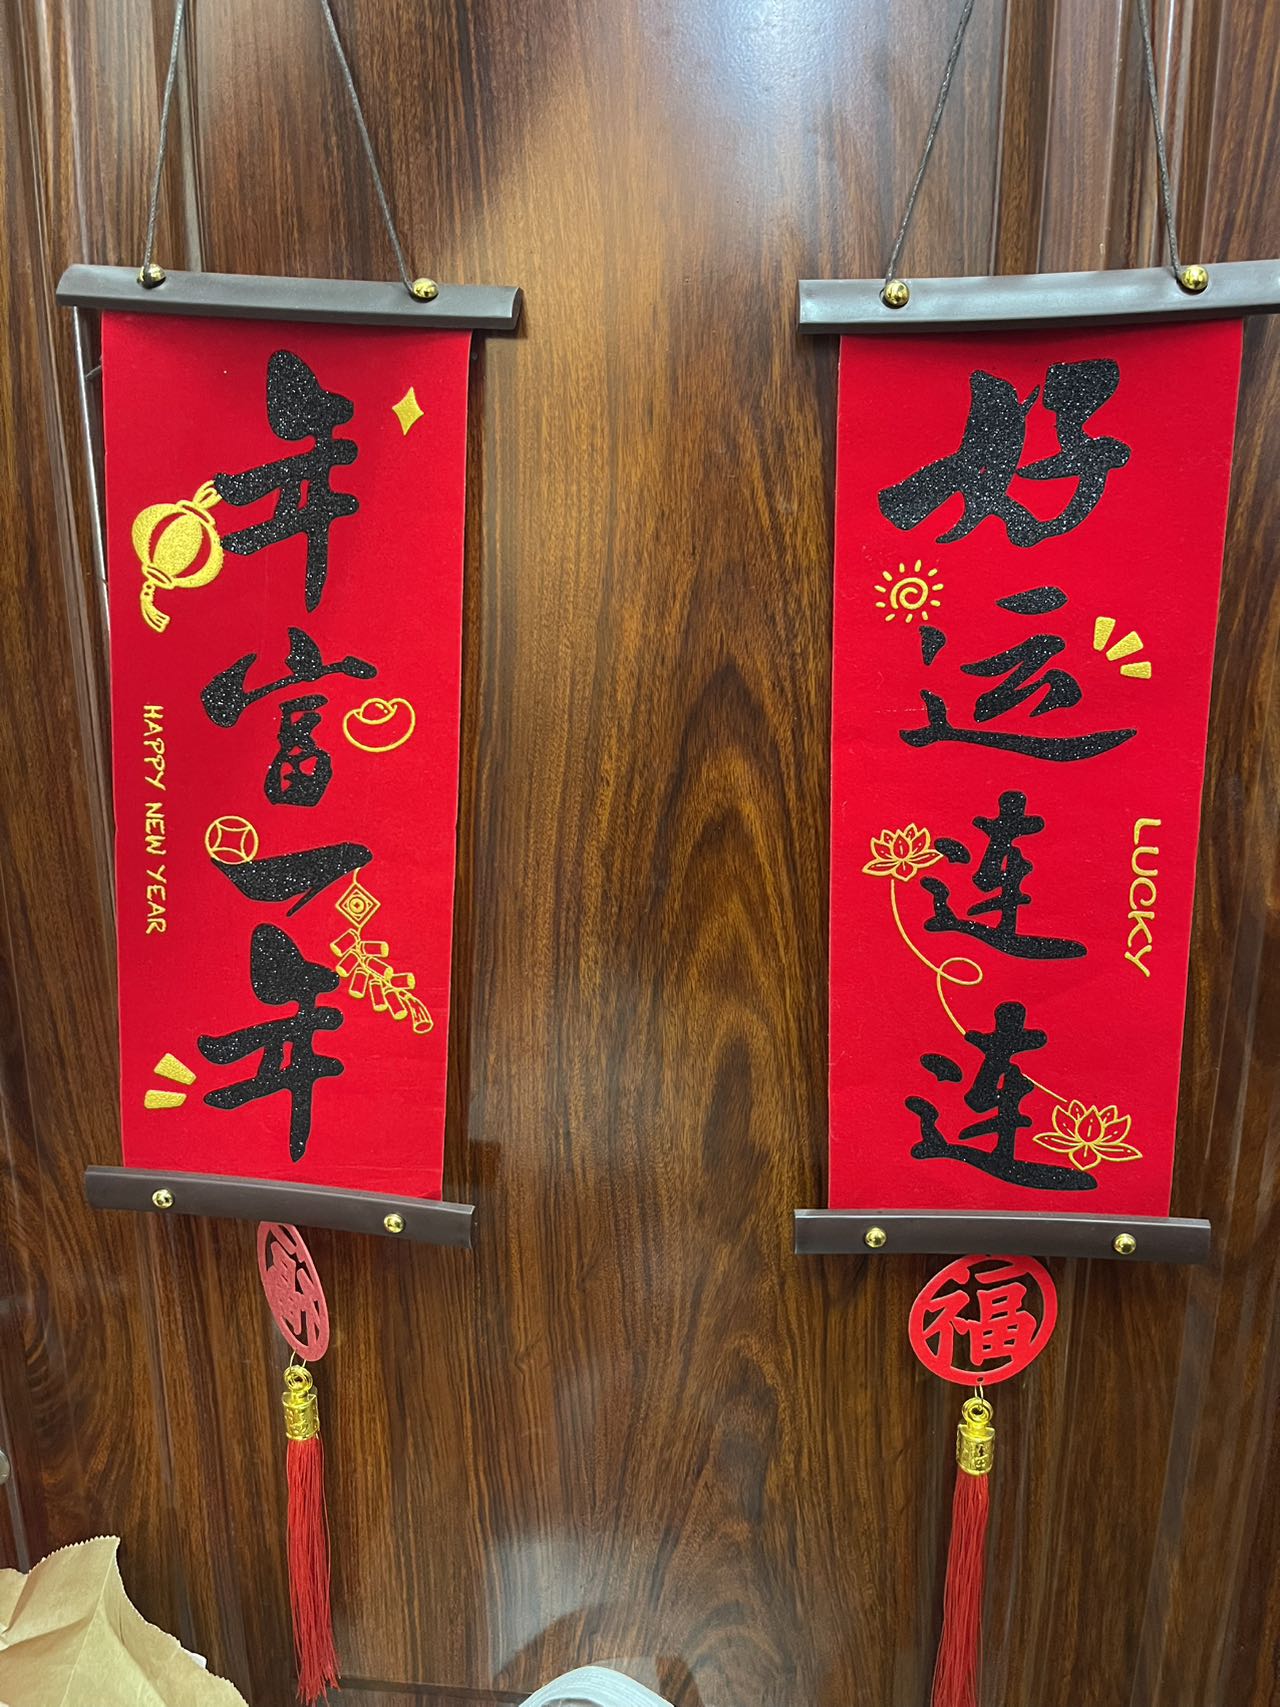 年富一年
HAPPY NEW YEAR
好运连连
LUCKY
福